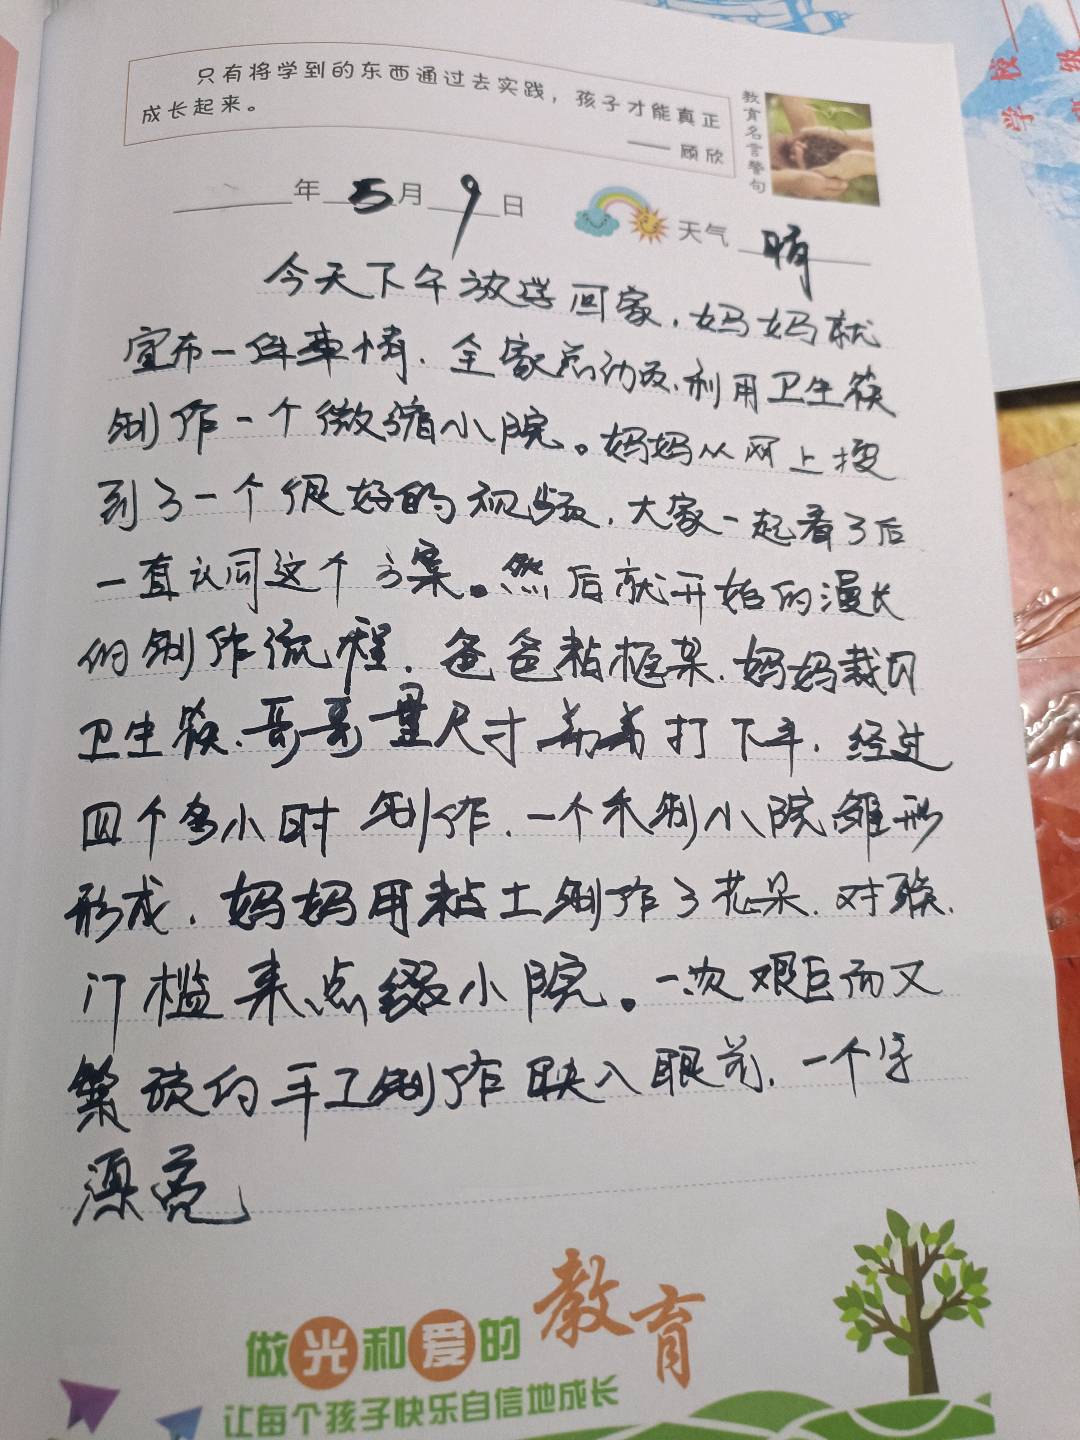 只有将学到的东西通过去实践，孩子才能真正
成长起来。
—— 顾欣
教育名言警句
年 5 月 9 日
天气 晴
今天下午放学回家，妈妈就
宣布一件事情，全家总动员，利用卫生筷
制作一个微缩小院。妈妈从网上搜
到了一个很好的视频，大家一起看了后
一直认同这个方案。然后就开始的漫长
的制作流程，爸爸粘框架，妈妈裁切
卫生筷，哥哥量尺寸 弟弟打下手，经过
四个多小时制作，一个木制小院雏形
形成，妈妈用粘土制作了花朵，对联，
门槛来点缀小院。一次艰巨而又
繁琐的手工制作映入眼前，一个字
漂亮
做光和爱的教育
让每个孩子快乐自信地成长
学校
级